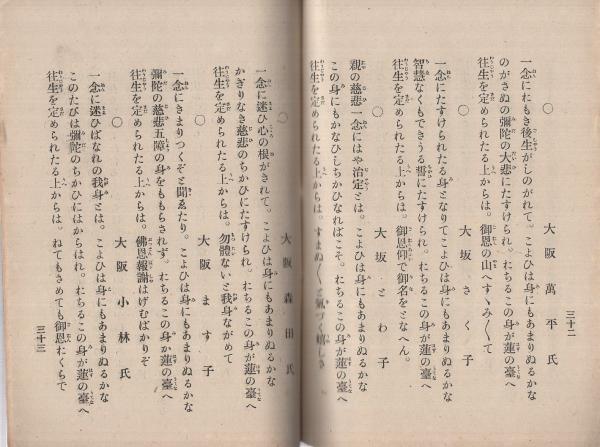 三十二
大阪萬平氏
一念にれもき後生がしのがれて。こよひは身にもあまりぬるかな
のがさぬの彌陀の大悲にたすけられ。れちるこの身が蓮の臺へ
往生を定められたる上からは。御恩の山へすゝみ〳〵て
○
大坂さく子
一念にたすけられたる身となりてこよひは身にもあまりぬるかな
智慧なくもできうる誓にたすけられ。れちるこの身が蓮の臺へ
往生を定められたる上からは。御恩仰で御名をとなへん。
○
大坂とわ子
親の慈悲一念にはや治定とは。こよひは身にもあまりぬるかな
この身にもかなひしちかひなればこそ。れちるこの身が蓮の臺へ
往生を定められたる上からは。すまぬ〳〵と氣づく嬉しさ
○
大阪森田氏
一念に迷ひ心の根がきれて。こよひは身にもあまりぬるかな
かぎりなき慈悲のちかひにたすけられ。れちるこの身が蓮の臺へ
往生を定められたる上からは。勿體ないと我身ながめて
○
大阪ます子
一念にきまりつくぞと聞ゑたり。こよひは身にもあまりぬるかな
彌陀の慈悲五障の身をももらされず。れちるこの身か蓮の臺へ
往生を定められたる上からは。佛恩報謝はげむばかりぞ
○
大阪小林氏
一念に迷ひばなれの我身とは。こよひは身にもあまりぬるかな
このたびは彌陀のちかひにはからはれ。れちるこの身が蓮の臺へ
往生を定められたる上からは。ねてもさめても御恩れくちで
三十三